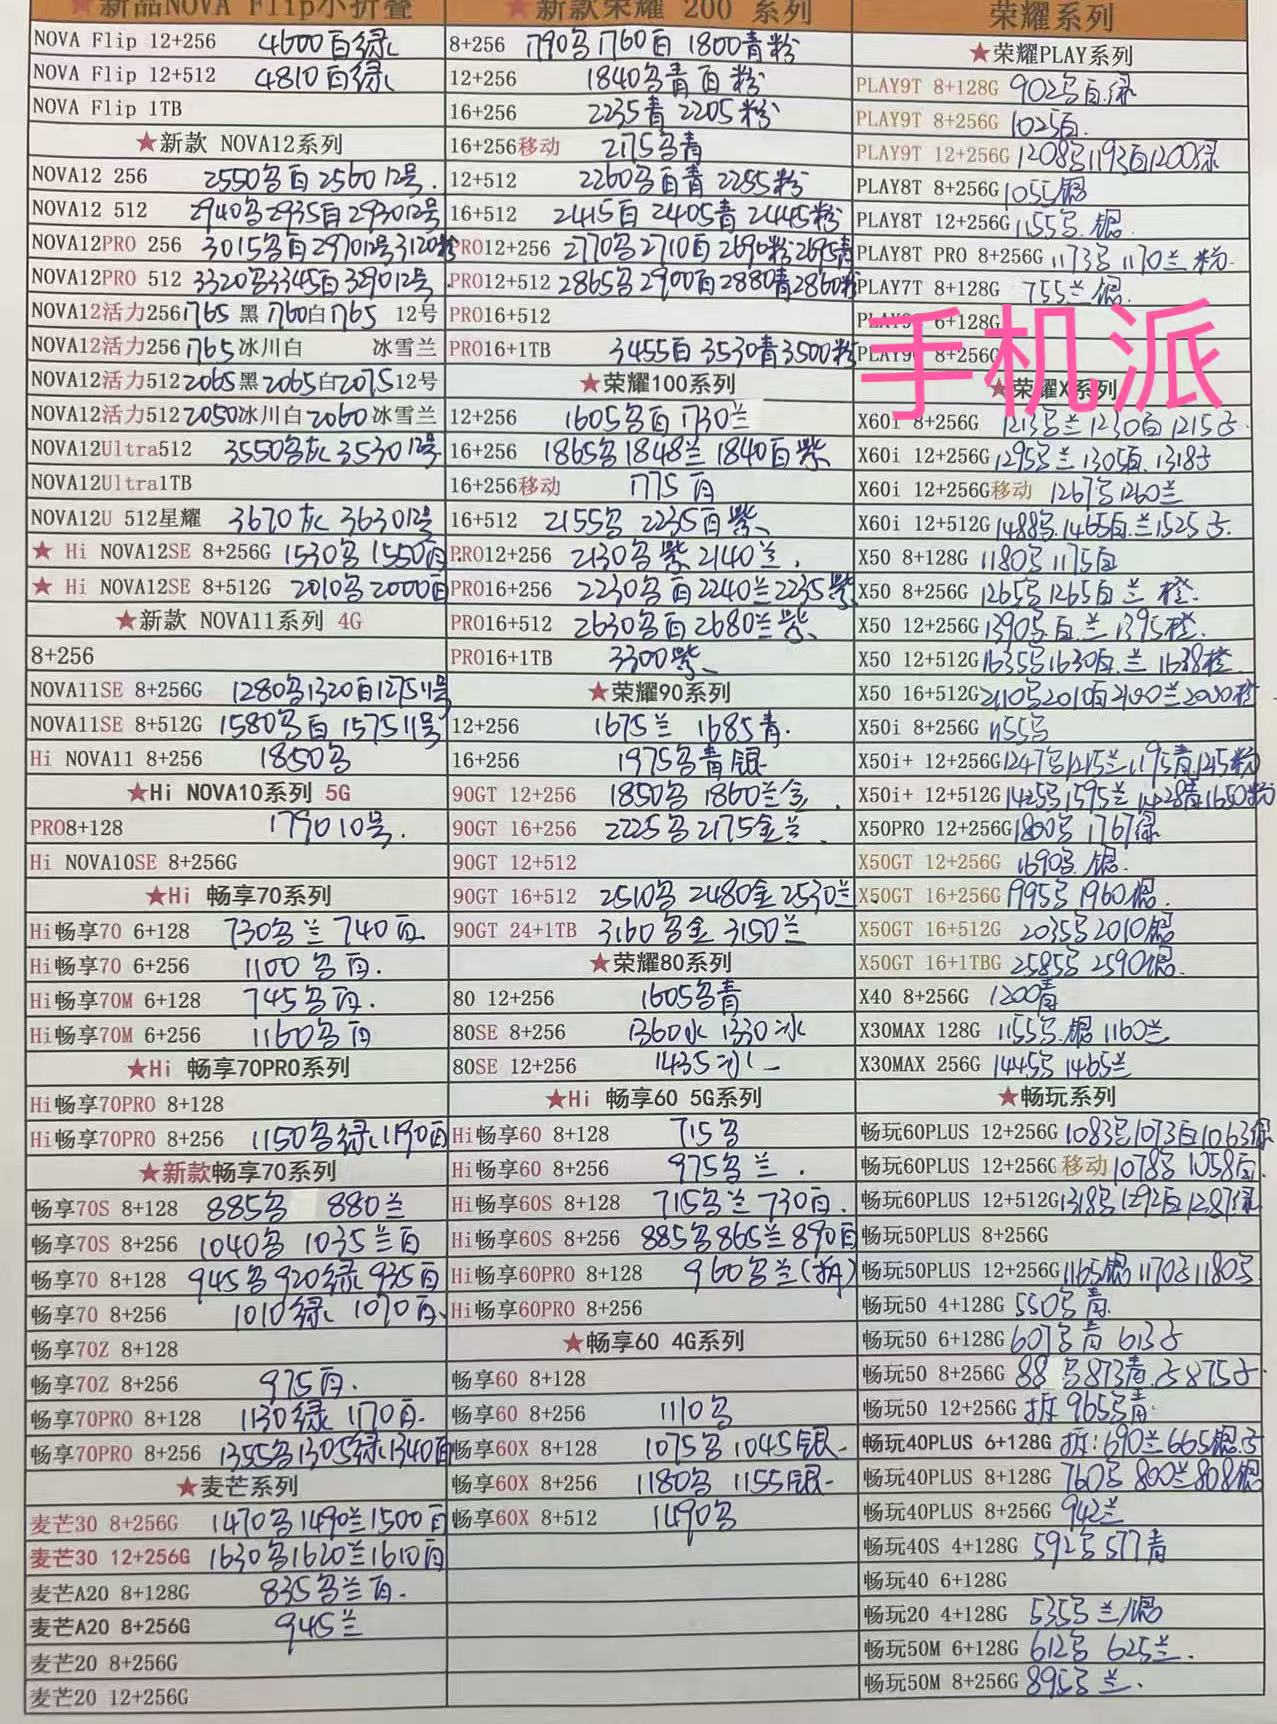 ★新品NOVA Flip小折叠
NOVA Flip 12+256 4600百绿
NOVA Flip 12+512 4810百绿
NOVA Flip 1TB
★新款 NOVA12系列
NOVA12 256 2550名百 2560 12号.
NOVA12 512 2940名2935百2930 12号
NOVA12PRO 256 3015名百2970 12号3120粉
NOVA12PRO 512 3320名3345百3290 12号
NOVA12活力256 1765 黑 1760白1765 12号
NOVA12活力256 1765 冰川白 冰雪兰
NOVA12活力512 2065黑2065白2075 12号
NOVA12活力512 2050冰川白2060 冰雪兰
NOVA12Ultra512 3550名灰 3530 12号
NOVA12Ultra1TB
NOVA12U 512星耀 3670灰 3630 12号
★ Hi NOVA12SE 8+256G 1530名 1550百
★ Hi NOVA12SE 8+512G 2010名2000百
★新款 NOVA11系列 4G
8+256
NOVA11SE 8+256G 1280名1320百1275 11号
NOVA11SE 8+512G 1580名百 1575 11号
Hi NOVA11 8+256 1850名
★Hi NOVA10系列 5G
PRO8+128 1790 10号.
Hi NOVA10SE 8+256G
★Hi 畅享70系列
Hi畅享70 6+128 730名兰 740百
Hi畅享70 6+256 1100 名百.
Hi畅享70M 6+128 745名百.
Hi畅享70M 6+256 1160名百
★Hi 畅享70PRO系列
Hi畅享70PRO 8+128
Hi畅享70PRO 8+256 1150名绿 1190百
★新款畅享70系列
畅享70S 8+128 885名 880兰
畅享70S 8+256 1040名 1035兰百
畅享70 8+128 945名920绿935百
畅享70 8+256 1010绿 1070百
畅享70Z 8+128
畅享70Z 8+256 975百.
畅享70PRO 8+128 1130绿 1170百.
畅享70PRO 8+256 1355名1305绿1340百
★麦芒系列
麦芒30 8+256G 1470名1490兰1500百
麦芒30 12+256G 1630名1620兰1610百
麦芒A20 8+128G 835名兰百.
麦芒A20 8+256G 945兰
麦芒20 8+256G
麦芒20 12+256G
★新款荣耀 200 系列
8+256 1790名1760百 1800青粉
12+256 1840名青百粉
16+256 2235青 2205粉
16+256移动 2175名青
12+512 2260名百青 2255粉
16+512 2415百 2405青 2445粉
PRO12+256 2770名2710百2690粉2695青
PRO12+512 2865名2900百2880青2860粉
PRO16+512
PRO16+1TB 3455百3530青3500粉
★荣耀100系列
12+256 1605名百 1730兰
16+256 1865名1848兰 1840百紫
16+256移动 1775百
16+512 2155名 2235百紫
PRO12+256 2130名紫 2140兰.
PRO16+256 2230名百2240兰2235紫
PRO16+512 2630名百2680兰紫
PRO16+1TB 3300紫
★荣耀90系列
12+256 1675兰 1685青.
16+256 1975名青银
90GT 12+256 1850名 1860兰金
90GT 16+256 2225名2175金兰
90GT 12+512
90GT 16+512 2510名 2480金 2530兰
90GT 24+1TB 3160名金 3150兰
★荣耀80系列
80 12+256 1605名青
80SE 8+256 1360水 1330冰
80SE 12+256 1435冰
★Hi 畅享60 5G系列
Hi畅享60 8+128 715名
Hi畅享60 8+256 975名兰.
Hi畅享60S 8+128 715名兰730百.
Hi畅享60S 8+256 885名865兰890百
Hi畅享60PRO 8+128 960名兰(拆)
Hi畅享60PRO 8+256
★畅享60 4G系列
畅享60 8+128
畅享60 8+256 1110名
畅享60X 8+128 1075名1045银
畅享60X 8+256 1180名 1155银
畅享60X 8+512 1490名
荣耀系列
★荣耀PLAY系列
PLAY9T 8+128G 902名百.绿
PLAY9T 8+256G 1025百.
PLAY9T 12+256G 1208名1193百1200绿
PLAY8T 8+256G 1055银
PLAY8T 12+256G 1155名.银
PLAY8T PRO 8+256G 1173名1170兰 粉
PLAY7T 8+128G 755兰银.
6+128G
8+256G
手机派
★荣耀X系列
X60i 8+256G 1213名兰1230百1215子
X60i 12+256G 1295名兰1305百.1318子
X60i 12+256G移动 1267名1260兰
X60i 12+512G 1488名.1465百.兰1525子.
X50 8+128G 1180名1175百
X50 8+256G 1265名1265百兰橙.
X50 12+256G 1390名百.兰 1395橙.
X50 12+512G 1635名1630百.兰 1638橙
X50 16+512G 2110名2010百2100兰2000橙
X50i 8+256G 1155名
X50i+ 12+256G 1247名1215兰1195青1215粉
X50i+ 12+512G 1425名1595兰1428青1650粉
X50PRO 12+256G 1800名 1767绿
X50GT 12+256G 1690名.银.
X50GT 16+256G 1995名1960银.
X50GT 16+512G 2035名2010银
X50GT 16+1TBG 2585名2590银.
X40 8+256G 1200青
X30MAX 128G 1155名.银 1160兰
X30MAX 256G 1445名1465兰
★畅玩系列
畅玩60PLUS 12+256G 1083名1073百1063绿
畅玩60PLUS 12+256G 移动 1078名 1058百.
畅玩60PLUS 12+512G 1318名1292百1287绿
畅玩50PLUS 8+256G
畅玩50PLUS 12+256G 1165银 1170子1180名
畅玩50 4+128G 550名青.
畅玩50 6+128G 607名青 613子
畅玩50 8+256G 88 名873青.875子
畅玩50 12+256G 拆 965名青.
畅玩40PLUS 6+128G 拆:690兰665银.子
畅玩40PLUS 8+128G 760名 800兰808银
畅玩40PLUS 8+256G 942兰
畅玩40S 4+128G 592名 577青
畅玩40 6+128G
畅玩20 4+128G 535名兰/银
畅玩50M 6+128G 612名 625兰.
畅玩50M 8+256G 895名兰.